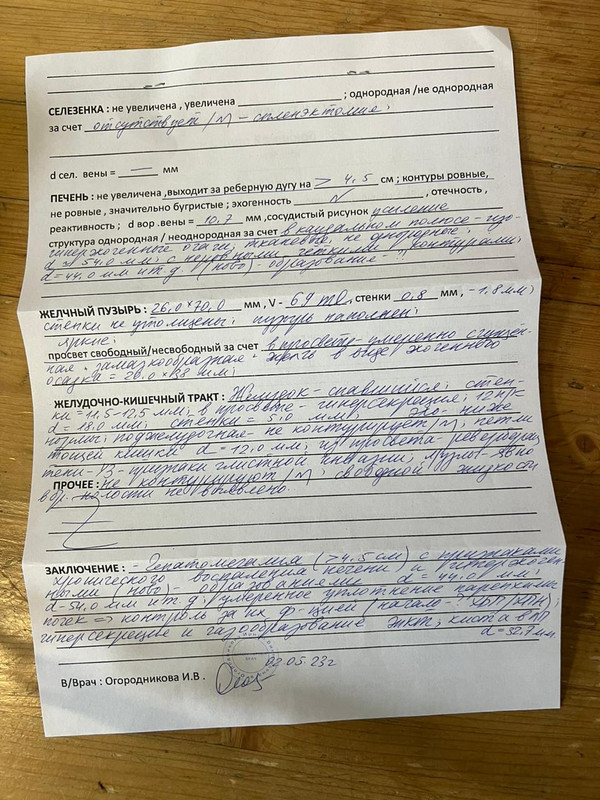 СЕЛЕЗЕНКА : не увеличена , увеличена ; однородная /не однородная
за счет отсутствует /м/ – спленэктомия;
d сел. вены = — мм
ПЕЧЕНЬ : не увеличена ,выходит за реберную дугу на > 4,5 см ; контуры ровные,
не ровные , значительно бугристые ; эхогенность , отечность ,
реактивность ; d вор .вены = 10,7 мм ,сосудистый рисунок усиление
структура однородная / неоднородная за счет в каудальном полюсе – гипо-
гиперэхогенные очаги; тканевое, не однородные;
d ≈ 54,0 мм; с неровными четкими контурами;
d=44,0 мм и т.д. (ново) - образование -
ЖЕЛЧНЫЙ ПУЗЫРЬ : 26,0 × 70,0 мм , V - 69 ml, стенки 0,8 мм , -1,8 мм;
стенки не утолщены; пузырь наполнен;
яркие;
просвет свободный/несвободный за счет в просвете – умеренно сгущен-
ная замазкообразная желчь в виде эхогенного
осадка = 20,0 × мм;
ЖЕЛУДОЧНО-КИШЕЧНЫЙ ТРАКТ : Желудок – спавшийся; стен-
ки = 11,5-12,5 мм; в просвете – гиперсекреция; 12 п/к
d = 18,0 мм; стенки = 5,0 мм; эхо – ниже
нормы; поджелудочная – не контурирует /м/; петли
тощей кишки d = 12,0 мм; из просвета – ревербера
тени – УЗ-признаки глистной инвазии; л/узлы – явно
ПРОЧЕЕ : не контурируют /м/; свободной жидкости
в бр. полости не выявлено.
ЗАКЛЮЧЕНИЕ : - Гепатомегалия (>4,5 см) с признаками
хронического воспаления печени и гиперэхоген-
ными (ново) - образованиями d = 44,0 мм;
d - 54,0 мм и т.д.; умеренное уплотнение паренхимы
почек => контроль за их ф-цией (начало - ХБП/ХПН);
гиперсекреция и газообразование жкт; киста в ЛП
d = 32,7 мм
02.05.23г
В/Врач : Огородникова И.В .